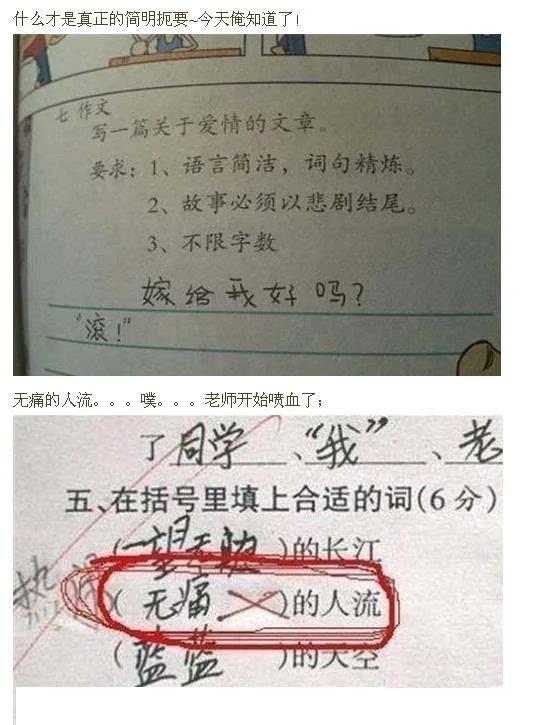 什么才是真正的简明扼要~今天俺知道了!
七 作文
写一篇关于爱情的文章。
要求：1、语言简洁，词句精炼。
2、故事必须以悲剧结尾。
3、不限字数
嫁给我好吗？
“滚！”
无痛的人流。。。噗。。。老师开始喷血了；
了同学、“我”、老
五、在括号里填上合适的词(6分)
(一望无际)的长江
(无痛)的人流
(蓝蓝)的天空